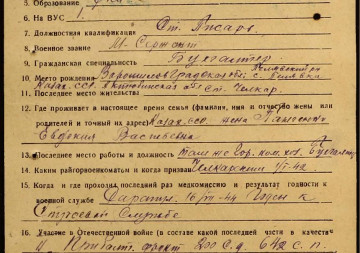 5. Образование
6. На ВУС 1.
7. Должностная квалификация Ст. Писарь.
8. Военное звание М. Сержант
9. Гражданская специальность Бухгалтер
10. Место рождения Ворошиловградская с.
Казах. ССР. Актюбинская ст. Челкар.
11. Последнее место жительства
12. Где проживает и настоящее время семья (фамилия, имя и отчество жены или
родителей и точный их адрес) Казах. ССР. жена
Евдокия
13. Последнее место работы и должность там же Гор. ком. хоз. Бухгалтер
14. Каким райгорвоенкоматом и когда призван Челкарским 42
15. Когда и где проходил последний раз медкомиссию и результат годности к
военной службе 16/ 44 Годен к
Строевой Службе
16. Участие в Отечественной войне (в составе какой последней части в качестве
Прибалт. фронт 200 с. д. 642 с. п.